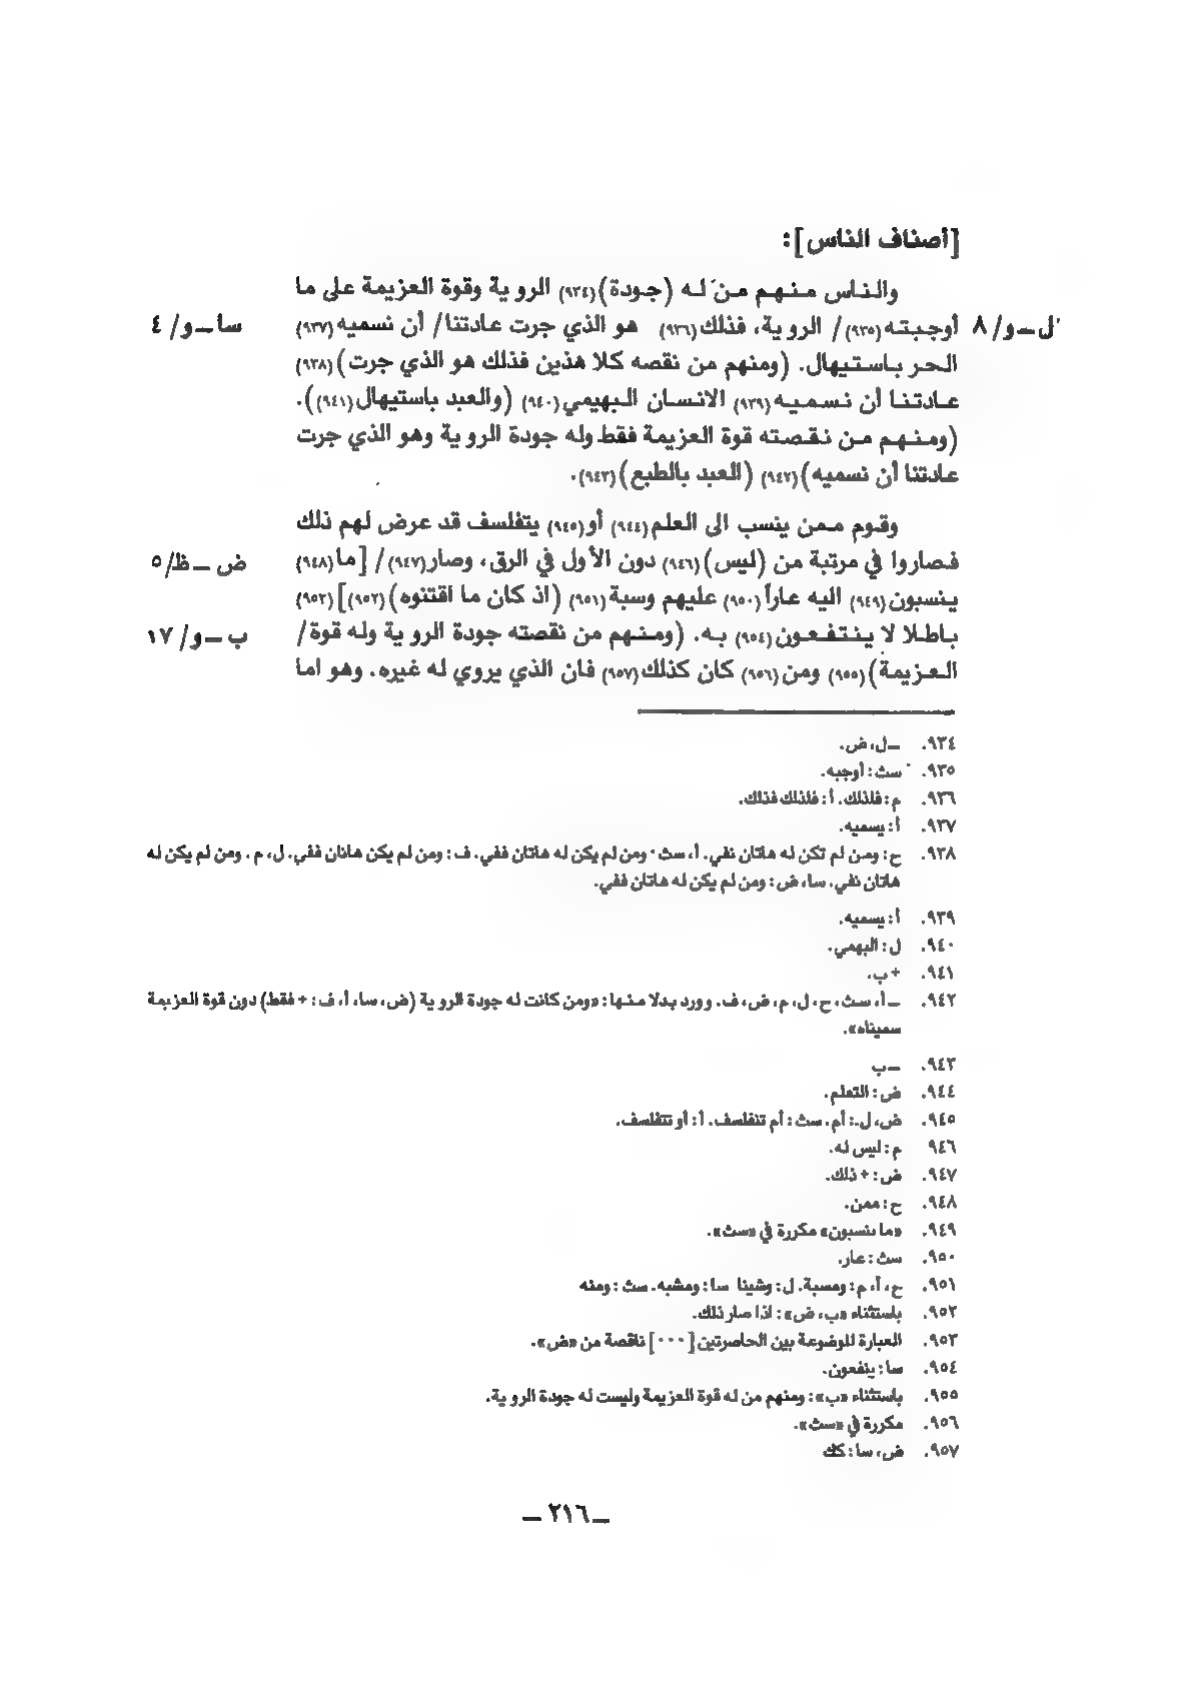 [أصناف الناس]:
والناس منهم من له (جودة)(٩٣٤) الروية وقوة العزيمة على ما
ل ــ و/ ٨ أوجبته(٩٣٥)/ الروية، فذلك(٩٣٦) هو الذي جرت عادتنا/ أن نسميه(٩٣٧) سا ــ و/ ٤
الحر باستيهال. (ومنهم من نقصه كلا هذين فذلك هو الذي جرت)(٩٣٨)
عادتنا أن نسميه(٩٣٩) الانسان البهيمي(٩٤٠) (والعبد باستيهال(٩٤١)).
(ومنهم من نقصته قوة العزيمة فقط وله جودة الروية وهو الذي جرت
عادتنا أن نسميه)(٩٤٢) (العبد بالطبع)(٩٤٣).
وقوم ممن ينسب الى العلم(٩٤٤) أو(٩٤٥) يتفلسف قد عرض لهم ذلك
فصاروا في مرتبة من (ليس)(٩٤٦) دون الأول في الرق، وصار(٩٤٧)/ [ما(٩٤٨) ض ــ ظ/٥
ينسبون(٩٤٩) اليه عاراً(٩٥٠) عليهم وسبة(٩٥١) (اذ كان ما اقتنوه)(٩٥٢)](٩٥٣)
باطلا لا ينتفعون(٩٥٤) به. (ومنهم من نقصته جودة الروية وله قوة/ ب ــ و/ ١٧
العزيمة)(٩٥٥) ومن(٩٥٦) كان كذلك(٩٥٧) فان الذي يروي له غيره. وهو اما
٩٣٤. ــ ل، ض.
٩٣٥. سث: أوجبه.
٩٣٦. م: فلذلك. أ: فلذلك فذلك.
٩٣٧. أ: يسميه.
٩٣٨. ح: ومن لم تكن له هاتان نفي. أ، سث٠ ومن لم يكن له هاتان ففي. ف: ومن لم يكن هاتان ففي. ل، م. ومن لم يكن له
هاتان نفي. سا، ض: ومن لم يكن له هاتان ففي.
٩٣٩. أ: يسميه.
٩٤٠. ل: البهمي.
٩٤١. + ب.
٩٤٢. ــ أ، سث، ح، ل، م، ض، ف. وورد بدلا منها: «ومن كانت له جودة الروية (ض، سا، أ، ف: + فقط) دون قوة العزيمة
سميناه».
٩٤٣. ــ ب
٩٤٤. ض: التعلم.
٩٤٥. ض، ل.: أم. سث: أم تتفلسف. أ: أو تتفلسف.
٩٤٦ م: ليس له.
٩٤٧. ض: + ذلك.
٩٤٨. ح: ممن.
٩٤٩. «ما ينسبون» مكررة في «سث».
٩٥٠. سث: عار.
٩٥١. ح، أ، م: ومسبة. ل: وشينا سا: ومشبه. سث: ومنه
٩٥٢. باستثناء «ب، ض»: اذا صار ذلك.
٩٥٣. العبارة الموضوعة بين الحاصرتين [٠٠٠] ناقصة من «ض».
٩٥٤. سا: ينفعون.
٩٥٥. باستثناء «ب»: ومنهم من له قوة العزيمة وليست له جودة الروية.
٩٥٦. مكررة في «سث».
٩٥٧. ض، سا: كك
ــ ٢١٦ ــ